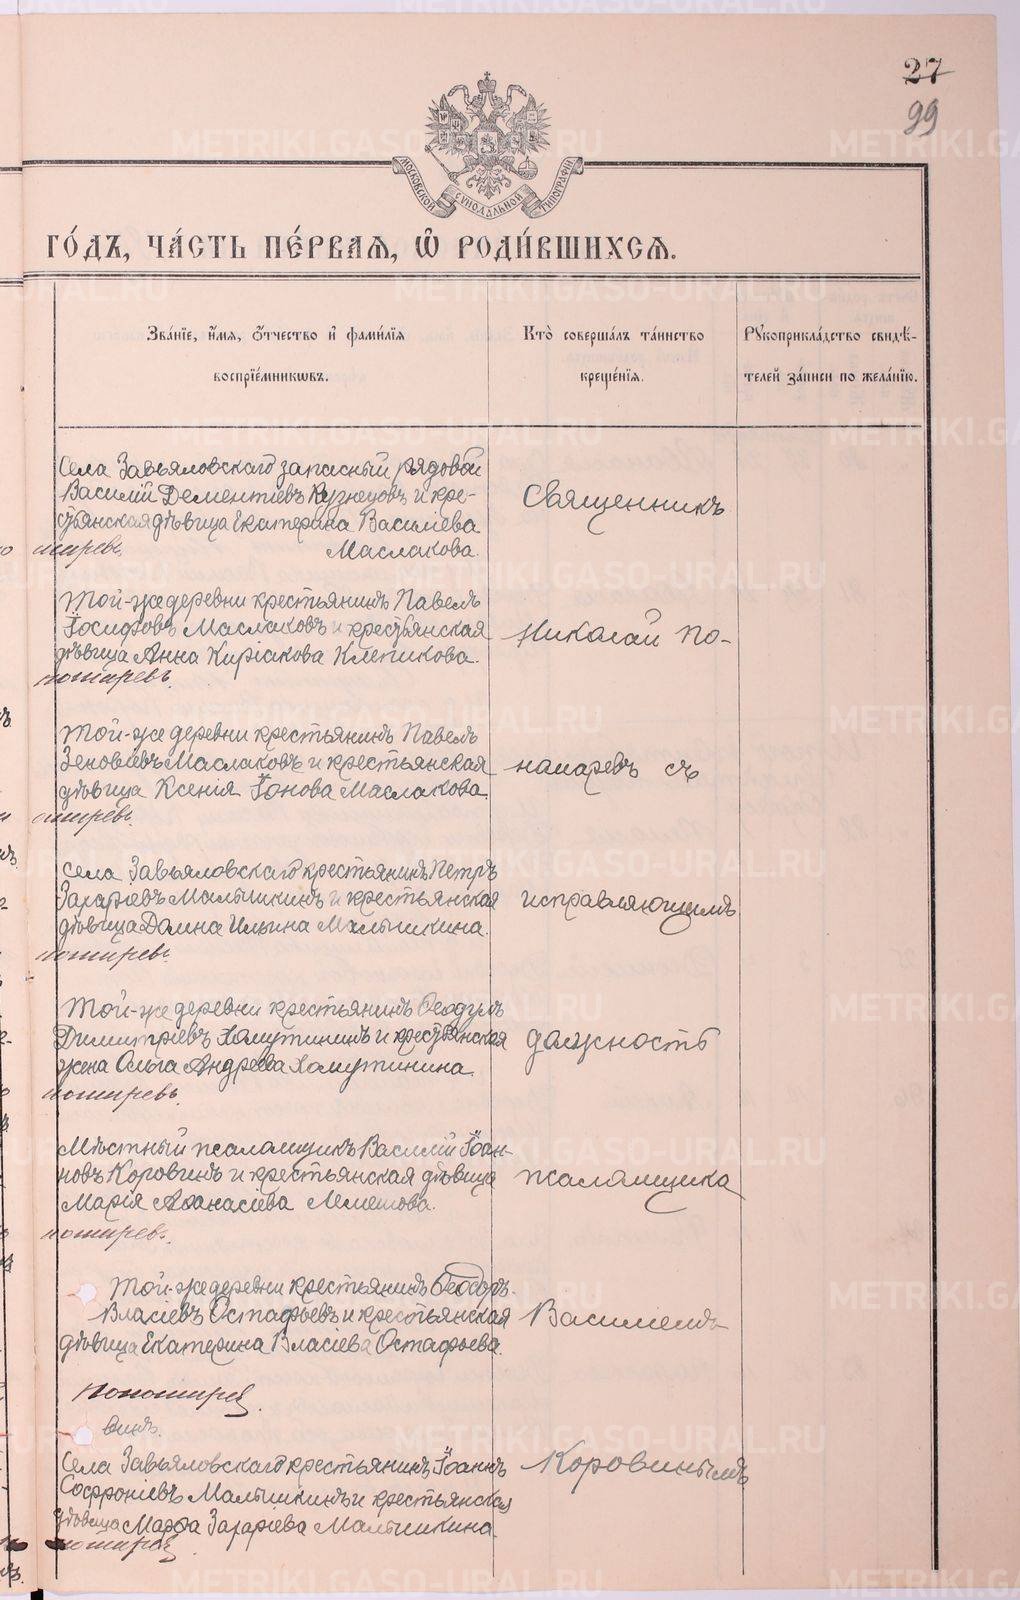 27
99
МОСКОВСКОЙ СѴНОДАЛЬНОЙ ТИПОГРАФІИ
ГО́ДЪ, ЧА́СТЬ ПЕ́РВАѦ, Ѽ РОДИ́ВШИХСѦ.
Зва́нїе, и҆́мѧ, ѻ҆́тчество и҆ фами́лїѧ
воспрїе́мникѡвъ.
Кто̀ соверша́лъ та́инство
креще́нїѧ.
Рꙋкоприкла́дство свидѣ́-
телей за́писи по жела́нїю.
Села Завьяловскаго запасный рядовой
Василій Дементіевъ Кузнецовъ и кре-
стьянская дѣвица Екатерина Василіева
Маслакова.
Священникъ
Той-же деревни крестьянинъ Павелъ
Іосифовъ Маслаковъ и крестьянская
дѣвица Анна Кирсакова Клепикова.
Николай По-
Той-же деревни крестьянинъ Павелъ
Зеновіевъ Маслаковъ и крестьянская
дѣвица Ксенія Іонова Маслакова.
номаревъ съ
Села Завьяловскаго крестьянинъ Петръ
Захаріевъ Малышкинъ и крестьянская
дѣвица Домна Ильина Малышкина.
исправляющимъ
Той-же деревни крестьянинъ Ѳеодулъ
Димитріевъ Хомутининъ и крестьянская
жена Ольга Андреева Хомутинина.
должность
Мѣстный псаломщикъ Василій Іоан-
новъ Коровинъ и крестьянская дѣвица
Марія Аѳанасіева Лемешова.
псаломщика
Той-же деревни крестьянинъ Ѳеодоръ
Власіевъ Остафьевъ и крестьянская
дѣвица Екатерина Власіева Остафьева.
Василіемъ
Села Завьяловскаго крестьянинъ Іоаннъ
Софроніевъ Малышкинъ и крестьянская
дѣвица Марѳа Захаріева Малышкина.
Коровинымъ
METRIKI.GASO-URAL.RU